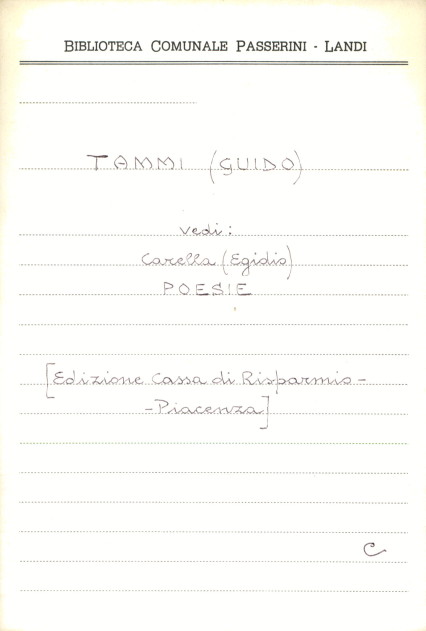 BIBLIOTECA COMUNALE PASSERINI - LANDI
TAMMI (GUIDO)
vedi:
Carella (Egidio)
POESIE
[Edizione Cassa di Risparmio -
- Piacenza]
C